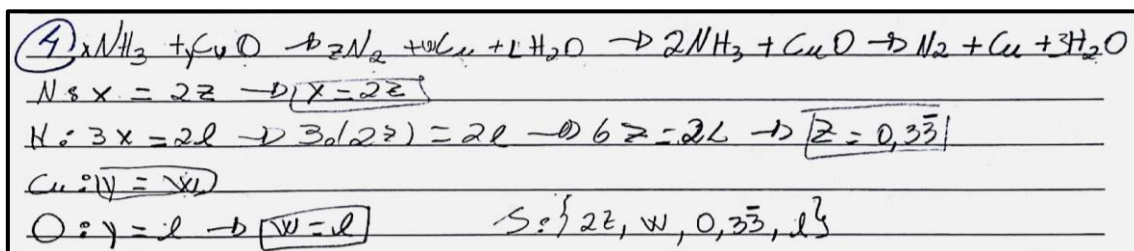 4) xNH₃ + yCuO → zN₂ + wCu + lH₂O → 2NH₃ + CuO → N₂ + Cu + 3H₂O
N: x = 2z → x = 2z
H: 3x = 2l → 3.(2z) = 2l → 6z = 2l → z = 0,33̄
Cu: y = w
O: y = l → w = l S: {2z, w, 0,33̄, l}